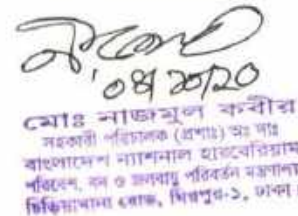 ০৪/১০/২০
মোঃ নাজমুল কবীর
সহকারী পরিচালক (প্রশাঃ) অঃ দাঃ
বাংলাদেশ ন্যাশনাল হারবেরিয়াম
পরিবেশ, বন ও জলবায়ু পরিবর্তন মন্ত্রণালয়
চিড়িয়াখানা রোড, মিরপুর-১, ঢাকা